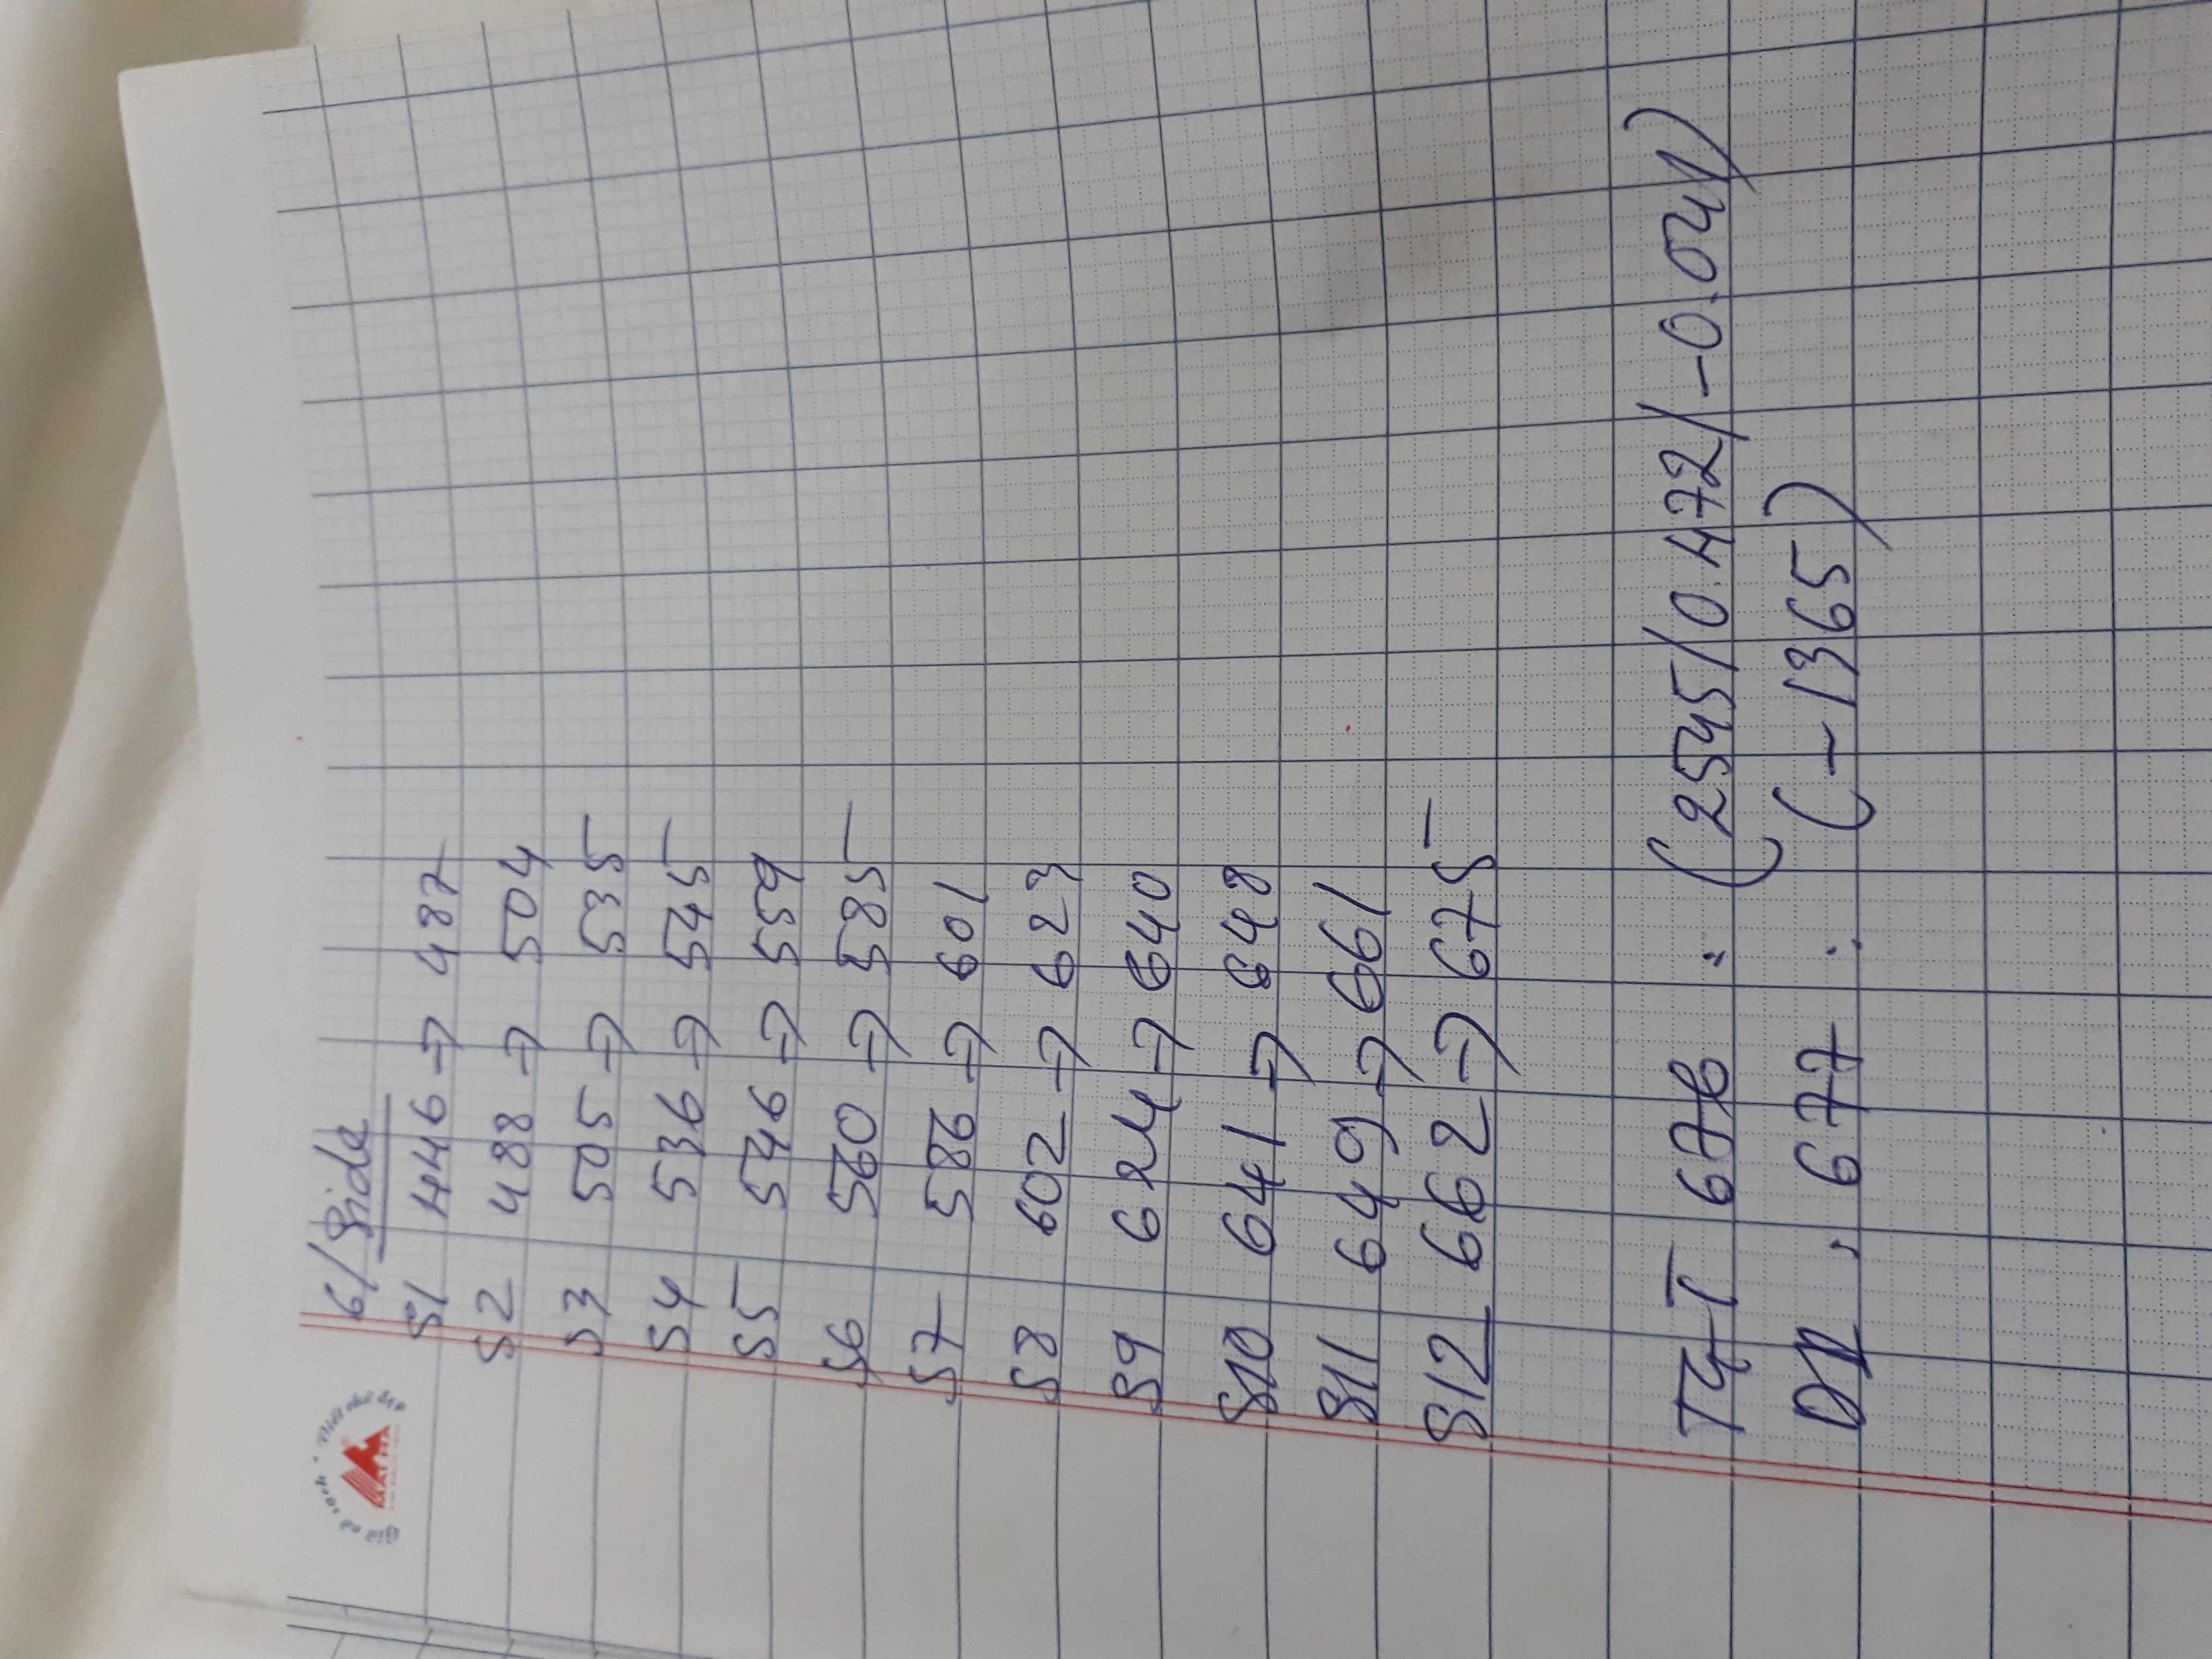 Giữ vở sạch - Viết chữ đẹp
MAI HA
6/ Side
S1 446 → 487
S2 488 → 504
S3 505 → 535
S4 536 → 545
S5 546 → 559
S6 560 → 585
S7 586 → 601
S8 602 → 623
S9 624 → 640
S10 641 → 648
S11 649 → 661
S12 662 → 675
676 : (2545/0.472/-0.041)
677 : (-1365)